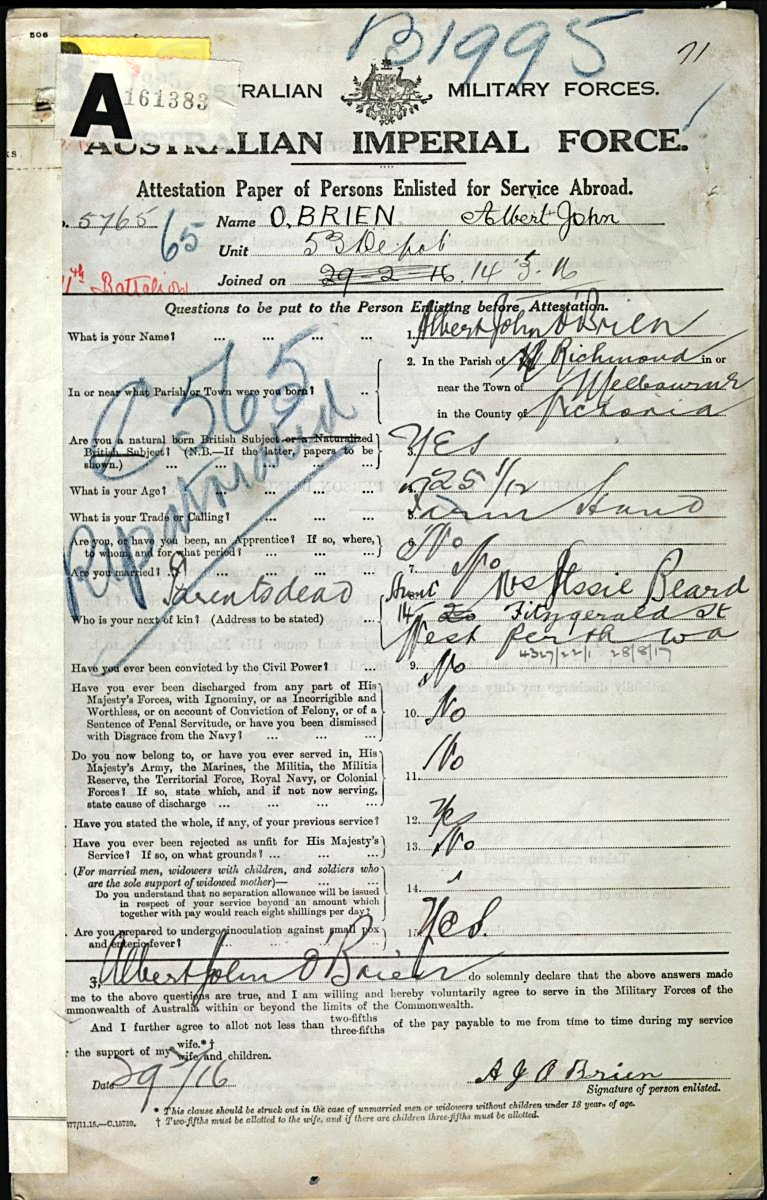 506
B1995
71
A
161383
TRALIAN MILITARY FORCES.
AUSTRALIAN IMPERIAL FORCE.
Attestation Paper of Persons Enlisted for Service Abroad.
o. 5765 Name O,BRIEN Albert John
65
Unit 53 Depot
11th Battalion
Joined on 29 2 16. 14 3 16
Questions to be put to the Person Enlisting before Attestation.
What is your Name? ... ... ... ... 1. Albert John O'Brien
2. In the Parish of Richmond in or
In or near what Parish or Town were you born? ... near the Town of Melbourne
in the County of Victoria
C 565
Repatriated
Are you a natural born British Subject or a Naturalized
British Subject? (N.B.—If the latter, papers to be
shown.) ... ... ... ... ... 3. Yes
What is your Age? ... ... ... ... 4. 25 1/12
What is your Trade or Calling? ... ... ... 5. Farm Hand
Are you, or have you been, an Apprentice? If so, where,
to whom, and for what period? ... ... ... 6. No
Are you married? ... ... ... ... 7. No
Parents dead
Who is your next of kin? (Address to be stated) ...
Aunt Mrs Jessie Beard
14 Fitzgerald St
West Perth W a
4327/22/1 28/8/17
Have you ever been convicted by the Civil Power? ... 9. No
Have you ever been discharged from any part of His
Majesty's Forces, with Ignominy, or as Incorrigible and
Worthless, or on account of Conviction of Felony, or of a
Sentence of Penal Servitude, or have you been dismissed
with Disgrace from the Navy? ... ... ... 10. No
Do you now belong to, or have you ever served in, His
Majesty's Army, the Marines, the Militia, the Militia
Reserve, the Territorial Force, Royal Navy, or Colonial
Forces? If so, state which, and if not now serving,
state cause of discharge ... ... ... ... 11. No
. Have you stated the whole, if any, of your previous service? 12. Yes
. Have you ever been rejected as unfit for His Majesty's
Service? If so, on what grounds? ... ... ... 13. No
. (For married men, widowers with children, and soldiers who
are the sole support of widowed mother)— ... ...
Do you understand that no separation allowance will be issued
in respect of your service beyond an amount which
together with pay would reach eight shillings per day? 14.
. Are you prepared to undergo inoculation against small pox
and enteric fever? ... ... ... ... 15. Yes.
Albert John O'Brien do solemnly declare that the above answers made
me to the above questions are true, and I am willing and hereby voluntarily agree to serve in the Military Forces of the
mmonwealth of Australia within or beyond the limits of the Commonwealth.
And I further agree to allot not less than two-fifths three-fifths of the pay payable to me from time to time during my service
the support of my wife.*† wife and children.
Date
A J O Brien
Signature of person enlisted.
* This clause should be struck out in the case of unmarried men or widowers without children under 18 years of age.
† Two-fifths must be allotted to the wife, and if there are children three-fifths must be allotted.
C.15739.